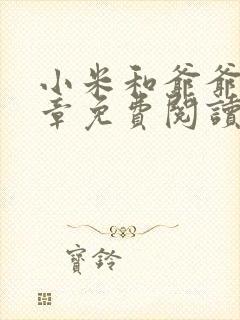 小米和爺爺
章免費閱讀
寶鈴